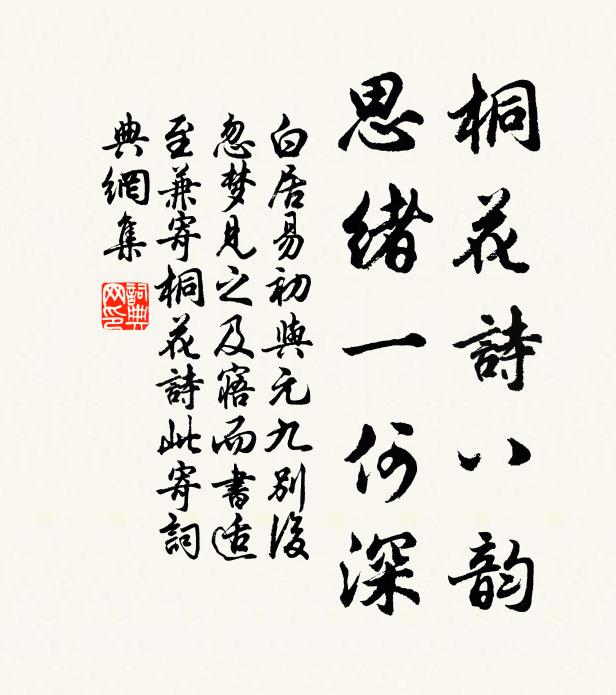 桐花詩八韵
思緒一何深
白居易初與元九別後
忽梦見之及寤而書適
至兼寄桐花詩此寄詞
典網集
詞典网印